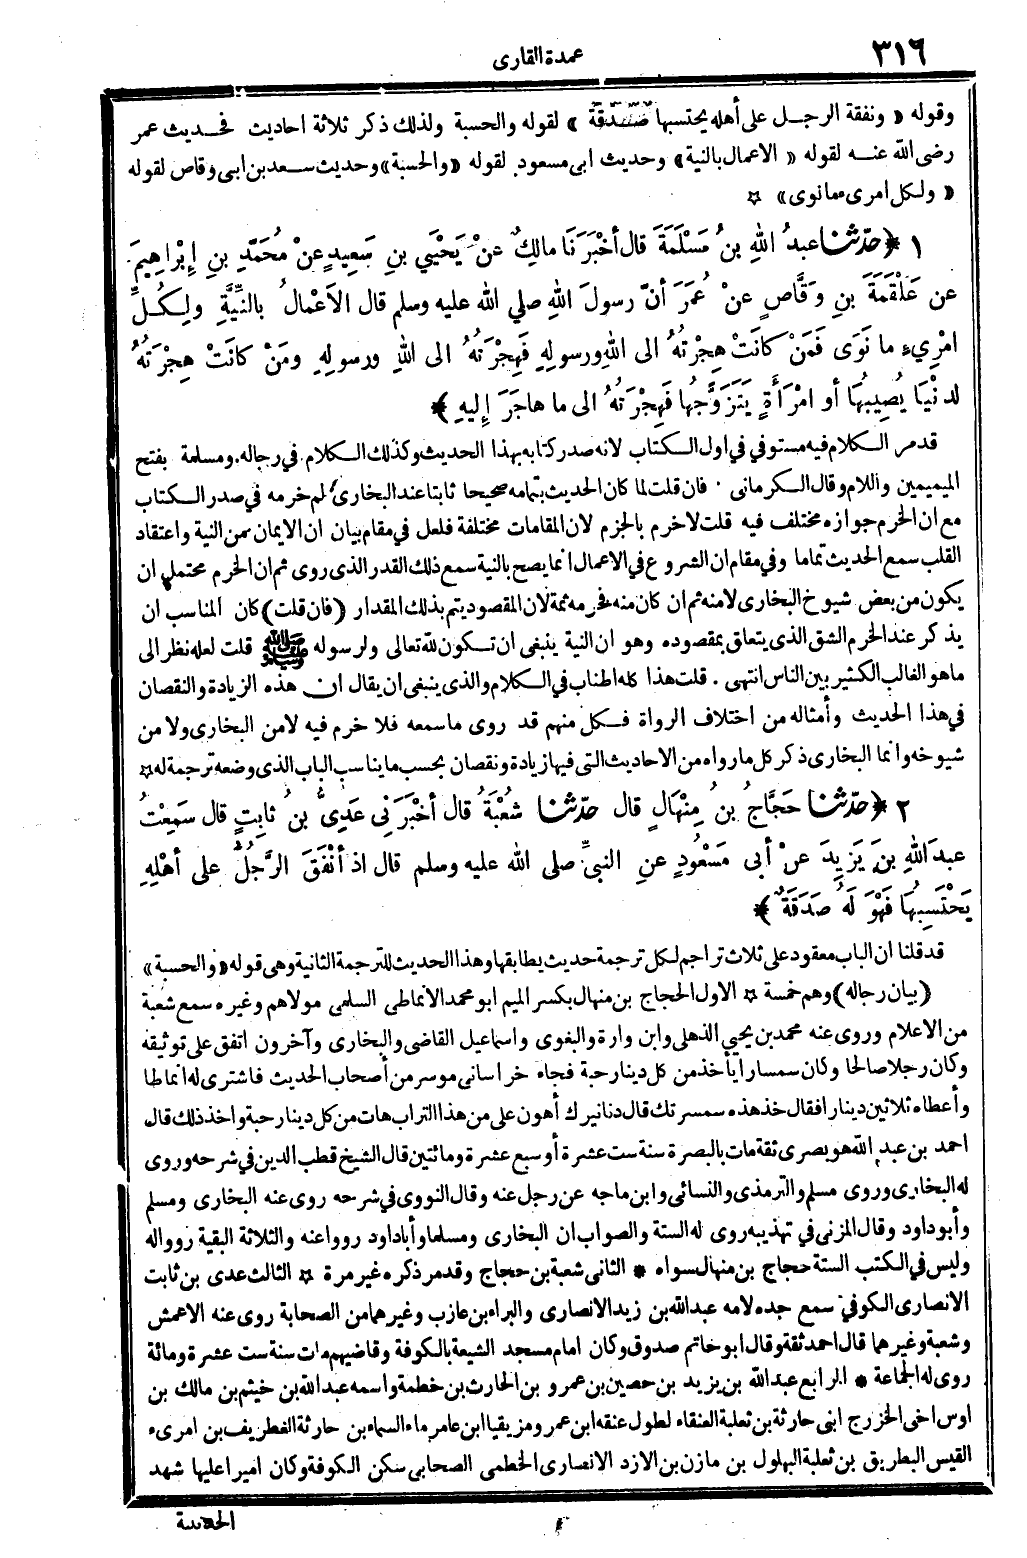 ٣١٦
عمدة القارى
وقوله « ونفقة الرجل على أهله يحتسبها صدقة » لقوله والحسبة ولذلك ذكر ثلاثة احاديث فحديث عمر
رضى الله عنه لقوله « الاعمال بالنية » وحديث ابى مسعود لقوله « والحسبة » وحديث سعد بن ابى وقاص لقوله
« ولكل امرى ما نوى » ☆
١ ﴿ حدّثنا عبدُ اللهِ بنُ مَسْلَمَةَ قال أخْبَرَنَا مالكٌ عنْ يَحْيَي بنِ سَعِيدٍ عنْ مُحَمَّدِ بنِ إبْراهِيمَ
عن عَلْقَمَةَ بنِ وَقَّاصٍ عنْ عُمَرَ أنّ رسولَ اللهِ صلي الله عليه وسلم قال الاَعْمالُ بالنِّيَّةِ ولِكُلِّ
امْرِيءٍ ما نَوَى فَمَنْ كانَتْ هِجْرَتُهُ الى اللهِ ورسولِهِ فَهِجْرَتُهُ الى اللهِ ورسولِهِ ومَنْ كانَتْ هِجْرَتُهُ
لدنْيَا يُصِيبُهَا أو امْرَأَةٍ يَتَزَوَّجُها فَهِجْرَتُهُ الى ما هاجَرَ إليهِ ﴾
قد مر الكلام فيه مستوفي في اول الكتاب لانه صدر كتابه بهذا الحديث وكذلك الكلام في رجاله. ومسلمة بفتح
الميمين واللام وقال الكرمانى . فان قلت لما كان الحديث بتمامه صحيحا ثابتا عند البخارى لم خرمه في صدر الكتاب
مع ان الخرم جوازه مختلف فيه قلت لا خرم بالجزم لان المقامات مختلفة فلعل في مقام بيان ان الايمان من النية واعتقاد
القلب سمع الحديث تماما وفي مقام ان الشروع في الاعمال انما يصح بالنية سمع ذلك القدر الذى روى ثم ان الخرم محتمل ان
يكون من بعض شيوخ البخارى لا منه ثم ان كان منه فخرمه ثمة لان المقصود يتم بذلك المقدار (فان قلت) كان المناسب ان
يذكر عند الخرم الشق الذى يتعلق بمقصوده وهو ان النية ينبغى ان تكون لله تعالى ولرسوله ﷺ قلت لعله نظر الى
ما هو الغالب الكثير بين الناس انتهى . قلت هذا كله اطناب في الكلام والذى ينبغى ان يقال ان هذه الزيادة والنقصان
في هذا الحديث وأمثاله من اختلاف الرواة فكل منهم قد روى ما سمعه فلا خرم فيه لا من البخارى ولا من
شيوخه وانما البخارى ذكر كل ما رواه من الاحاديث التى فيها زيادة ونقصان بحسب ما يناسب الباب الذى وضعه ترجمة له ☆
٢ ﴿ حدّثنا حَجَّاجُ بنُ مِنْهَالٍ قال حدّثنا شُعْبَةُ قال أخْبَرَنِي عَدِيُّ بنُ ثابِتٍ قال سَمِعْتُ
عبدَ اللهِ بنَ يَزِيدَ عنْ أبى مَسْعُودٍ عنِ النبيِّ صلى الله عليه وسلم قال اذ أنْفَقَ الرَّجُلُ على أهْلِهِ
يَحْتَسِبُهَا فَهْوَ لَهُ صَدَقَةٌ ﴾
قد قلنا ان الباب معقود على ثلاث تراجم لكل ترجمة حديث يطابقها وهذا الحديث للترجمة الثانية وهى قوله « والحسبة »
(بيان رجاله) وهم خمسة ☆ الاول الحجاج بن منهال بكسر الميم ابو محمد الانماطى السلمى مولاهم وغيره سمع شعبة
من الاعلام وروى عنه محمد بن يحيى الذهلى وابن وارة والبغوى واسماعيل القاضى والبخارى وآخرون اتفق على توثيقه
وكان رجلا صالحا وكان سمسارا يأخذ من كل دينار حبة فجاء خراسانى موسر من أصحاب الحديث فاشترى له انماطا
وأعطاه ثلاثين دينارا فقال خذ هذه سمسرتك قال دنانيرك أهون على من هذا التراب هات من كل دينار حبة واخذ ذلك قال
احمد بن عبد الله هو بصرى ثقة مات بالبصرة سنة ست عشرة أو سبع عشرة ومائتين قال الشيخ قطب الدين في شرحه وروى
له البخارى وروى مسلم والترمذى والنسائى وابن ماجه عن رجل عنه وقال النووى في شرحه روى عنه البخارى ومسلم
وأبو داود وقال المزنى في تهذيبه روى له الستة والصواب ان البخارى ومسلما وأبا داود رووا عنه والثلاثة البقية رووا له
وليس في الكتب الستة حجاج بن منهال سواه ☆ الثانى شعبة بن حجاج وقد مر ذكره غير مرة ☆ الثالث عدى بن ثابت
الانصارى الكوفي سمع جده لامه عبد الله بن زيد الانصارى والبراء بن عازب وغيرهما من الصحابة روى عنه الاعمش
وشعبة وغيرهما قال احمد ثقة وقال ابو خاتم صدوق وكان امام مسجد الشيعة بالكوفة وقاضيهم مات سنة ست عشرة ومائة
روى له الجماعة ☆ الرابع عبد الله بن يزيد بن حصين بن عمرو بن الحارث بن خطمة واسمه عبد الله بن خيثم بن مالك بن
اوس اخى الخزرج ابنى حارثة بن ثعلبة العنقاء لطول عنقه ابن عمرو مزيقيا ابن عامر ماء السماء بن حارثة الغطريف بن امرىء
القيس البطريق بن ثعلبة البهلول بن مازن بن الازد الانصارى الخطمى الصحابى سكن الكوفة وكان اميرا عليها شهد
الحديبية